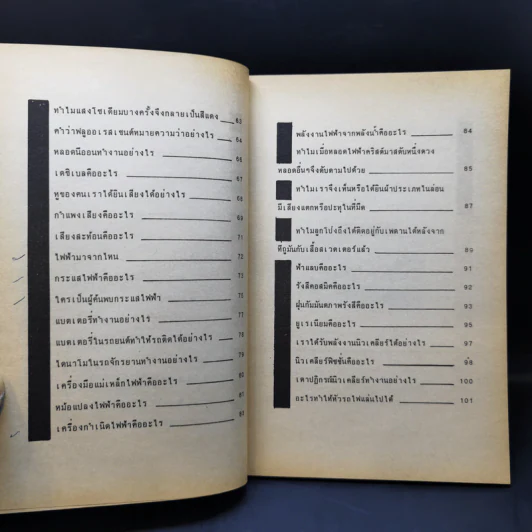 ทำไมแสงโซเดียมบางครั้งจึงกลายเป็นสีแดง 63
คำว่าฟลูออเรสเซนต์หมายความว่าอย่างไร 64
หลอดนีออนทำงานอย่างไร 66
เดซิเบลคืออะไร 67
หูของคนเราได้ยินเสียงได้อย่างไร 68
กำแพงเสียงคืออะไร 69
เสียงสะท้อนคืออะไร 71
ไฟฟ้ามาจากไหน 72
กระแสไฟฟ้าคืออะไร 73
ใครเป็นผู้ค้นพบกระแสไฟฟ้า 75
แบตเตอรี่ทำงานอย่างไร 77
แบตเตอรี่ในรถยนต์ทำให้รถติดได้อย่างไร 78
ไดนาโมในรถจักรยานทำงานอย่างไร 79
เครื่องมือแม่เหล็กไฟฟ้าคืออะไร 80
หม้อแปลงไฟฟ้าคืออะไร 81
เครื่องกำเนิดไฟฟ้าคืออะไร
พลังงานไฟฟ้าจากพลังน้ำคืออะไร 84
ทำไมเมื่อหลอดไฟฟ้าคริสต์มาสดับหนึ่งดวง
หลอดอื่นๆจึงดับตามไปด้วย 85
ทำไมเราจึงเห็นหรือได้ยินฝ้าประเภทในล่อน
มีเสียงแตกหรือปะทุในที่มืด 87
ทำไมลูกโป่งถึงได้ติดอยู่กับเพดานได้หลังจาก
ที่ถูมันกับเสื้อสเวตเตอร์แล้ว 89
ฟ้าแลบคืออะไร 91
รังสีคอสมิคคืออะไร 92
ฝุ่นกัมมันตภาพรังสีคืออะไร 93
ยูเรเนียมคืออะไร 95
เราได้รับพลังงานนิวเคลียร์ได้อย่างไร 97
นิวเคลียร์ฟิชชั่นคืออะไร 98
เตาปฏิกรณ์นิวเคลียร์ทำงานอย่างไร 100
อะไรทำให้หัวรถไฟแล่นไปได้ 101